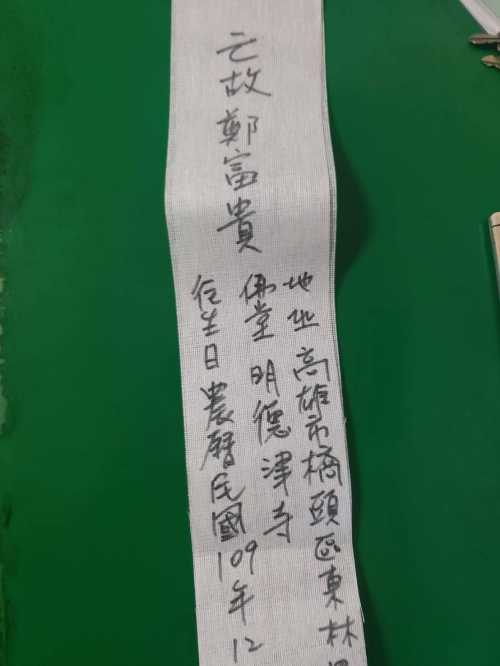 亡故鄭富貴
地址 高雄市橋頭區東林
佛堂 明德津寺
往生日 農曆民國109年12